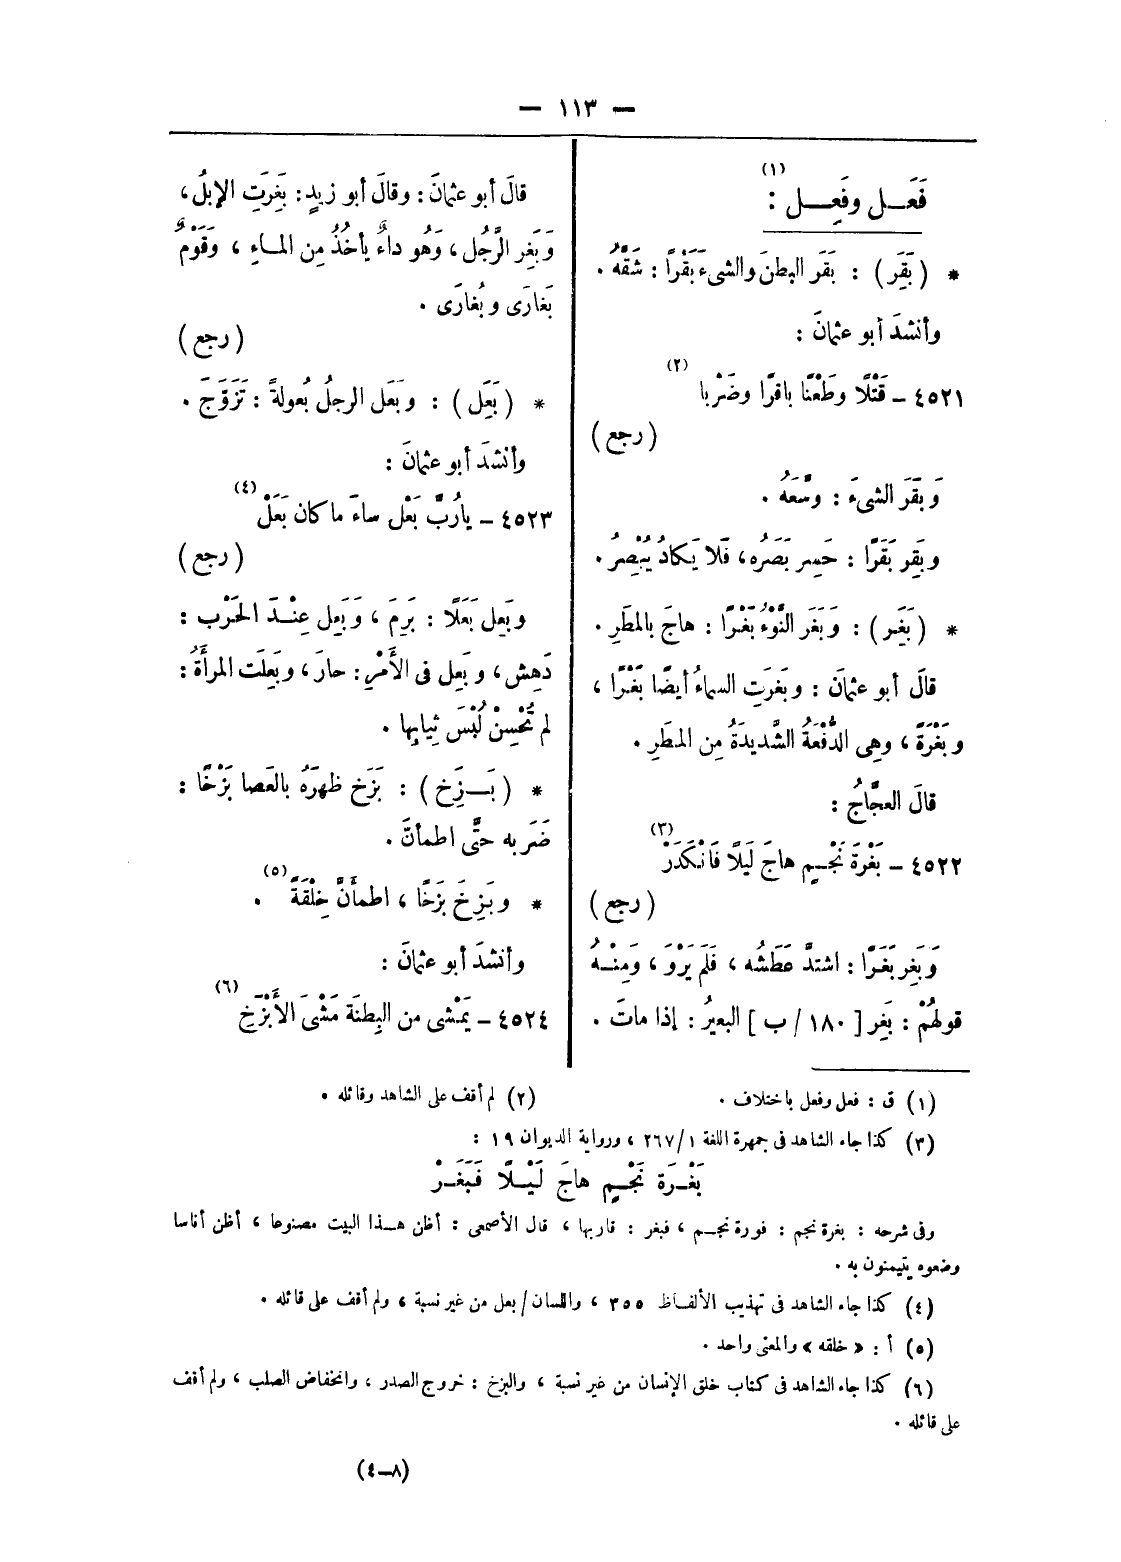 — ١١٣ —
فَعَل وفَعِل (١) :
* ( بَقِر ) : بَقَر البطنَ والشىءَ بَقْرًا : شقَّهُ .
وأنشدَ أبو عثمانَ :
٤٥٢١ – قَتْلًا وطَعْنًا باقرًا وضَرْبا (٢)
( رجع )
وَبَقَرَ الشىءَ : وسَّعَهُ .
وبَقِر بَقَرًا : حَسِر بَصَرُه ، فَلا يَكادُ يُبْصِرُ .
* ( بَغَر ) : وَبَغَر النَّوْءُ بَغْرًا : هاجَ بالمطَرِ .
قالَ أبو عثمانَ : وبَغَرتِ السماءُ أيضًا بَغْرًا ،
وبَغْرَةً ، وهِى الدُّفْعَةُ الشَّديدَةُ مِن المطَرِ .
قالَ العجَّاجُ :
٤٥٢٢ – بَغْرَةَ نَجْمٍ هاجَ لَيلًا فَانْكَدَرْ (٣)
( رجع )
وَبَغِر بَغَرًا : اشتدَّ عَطَشُه ، فَلَم يَرْوَ ، وَمِنْهُ
قولهُمْ : بَغِر [ ١٨٠ / ب ] البعيرُ : إذا ماتَ .
قالَ أبو عثمانَ : وقالَ أبو زيدٍ : بَغِرَتِ الإبلُ ،
وَبَغِر الرَّجُل ، وَهُو داءٌ يأخُذُ مِن المـاءِ ، وقَوْمٌ
بَغارَى وبُغارَى .
( رجع )
* ( بَعَل ) : وبَعَل الرجلُ بُعولةً : تَزَوَّجَ .
وأنشدَ أبو عثمانَ :
٤٥٢٣ – يارُبَّ بَعْل ساءَ ما كان بَعَلْ (٤)
( رجع )
وبَعِل بَعَلًا : بَرِمَ ، وَبَعِل عِنْدَ الحَرْب :
دَهِش ، وبَعِل فى الأَمْرِ : حارَ ، وبَعِلَت المرأَةُ :
لم تُحْسِنْ لُبْسَ ثِيابِها .
* ( بَزَخ ) : بَزَخ ظهرَهُ بالعَصا بَزْخًا :
ضَرَبه حتَّى اطمأنَّ .
* وبَزِخَ بَزَخًا ، اطمأنَّ خِلْقَةً (٥) .
وأنشدَ أبو عثمانَ :
٤٥٢٤ – يَمْشى من البِطنَة مَشْىَ الأَبْزَخِ (٦)
(١) ق : فعل وفعل باختلاف .
(٢) لم أقف على الشاهد وقائله .
(٣) كذا جاء الشاهد فى جمهرة اللغة ١/٢٦٧ ، ورواية الديوان ١٩ :
بَغْرَة نَجْمٍ هاجَ لَيْلًا فَبَغَرْ
وفى شرحه : بغرة نجم : فورة نجم ، فبغر : قاربها ، قال الأصمعى : أظن هذا البيت مصنوعا ، أظن أناسا
وضعوه يتيمنون به .
(٤) كذا جاء الشاهد فى تهذيب الألفاظ ٣٥٥ ، واللسان / بعل من غير نسبة ، ولم أقف على قائله .
(٥) أ : « خلقه » والمعنى واحد .
(٦) كذا جاء الشاهد فى كتاب خلق الإنسان من غير نسبة ، والبزخ : خروج الصدر ، وانخفاض الصلب ، ولم أقف
على قائله .
(٨–٤)